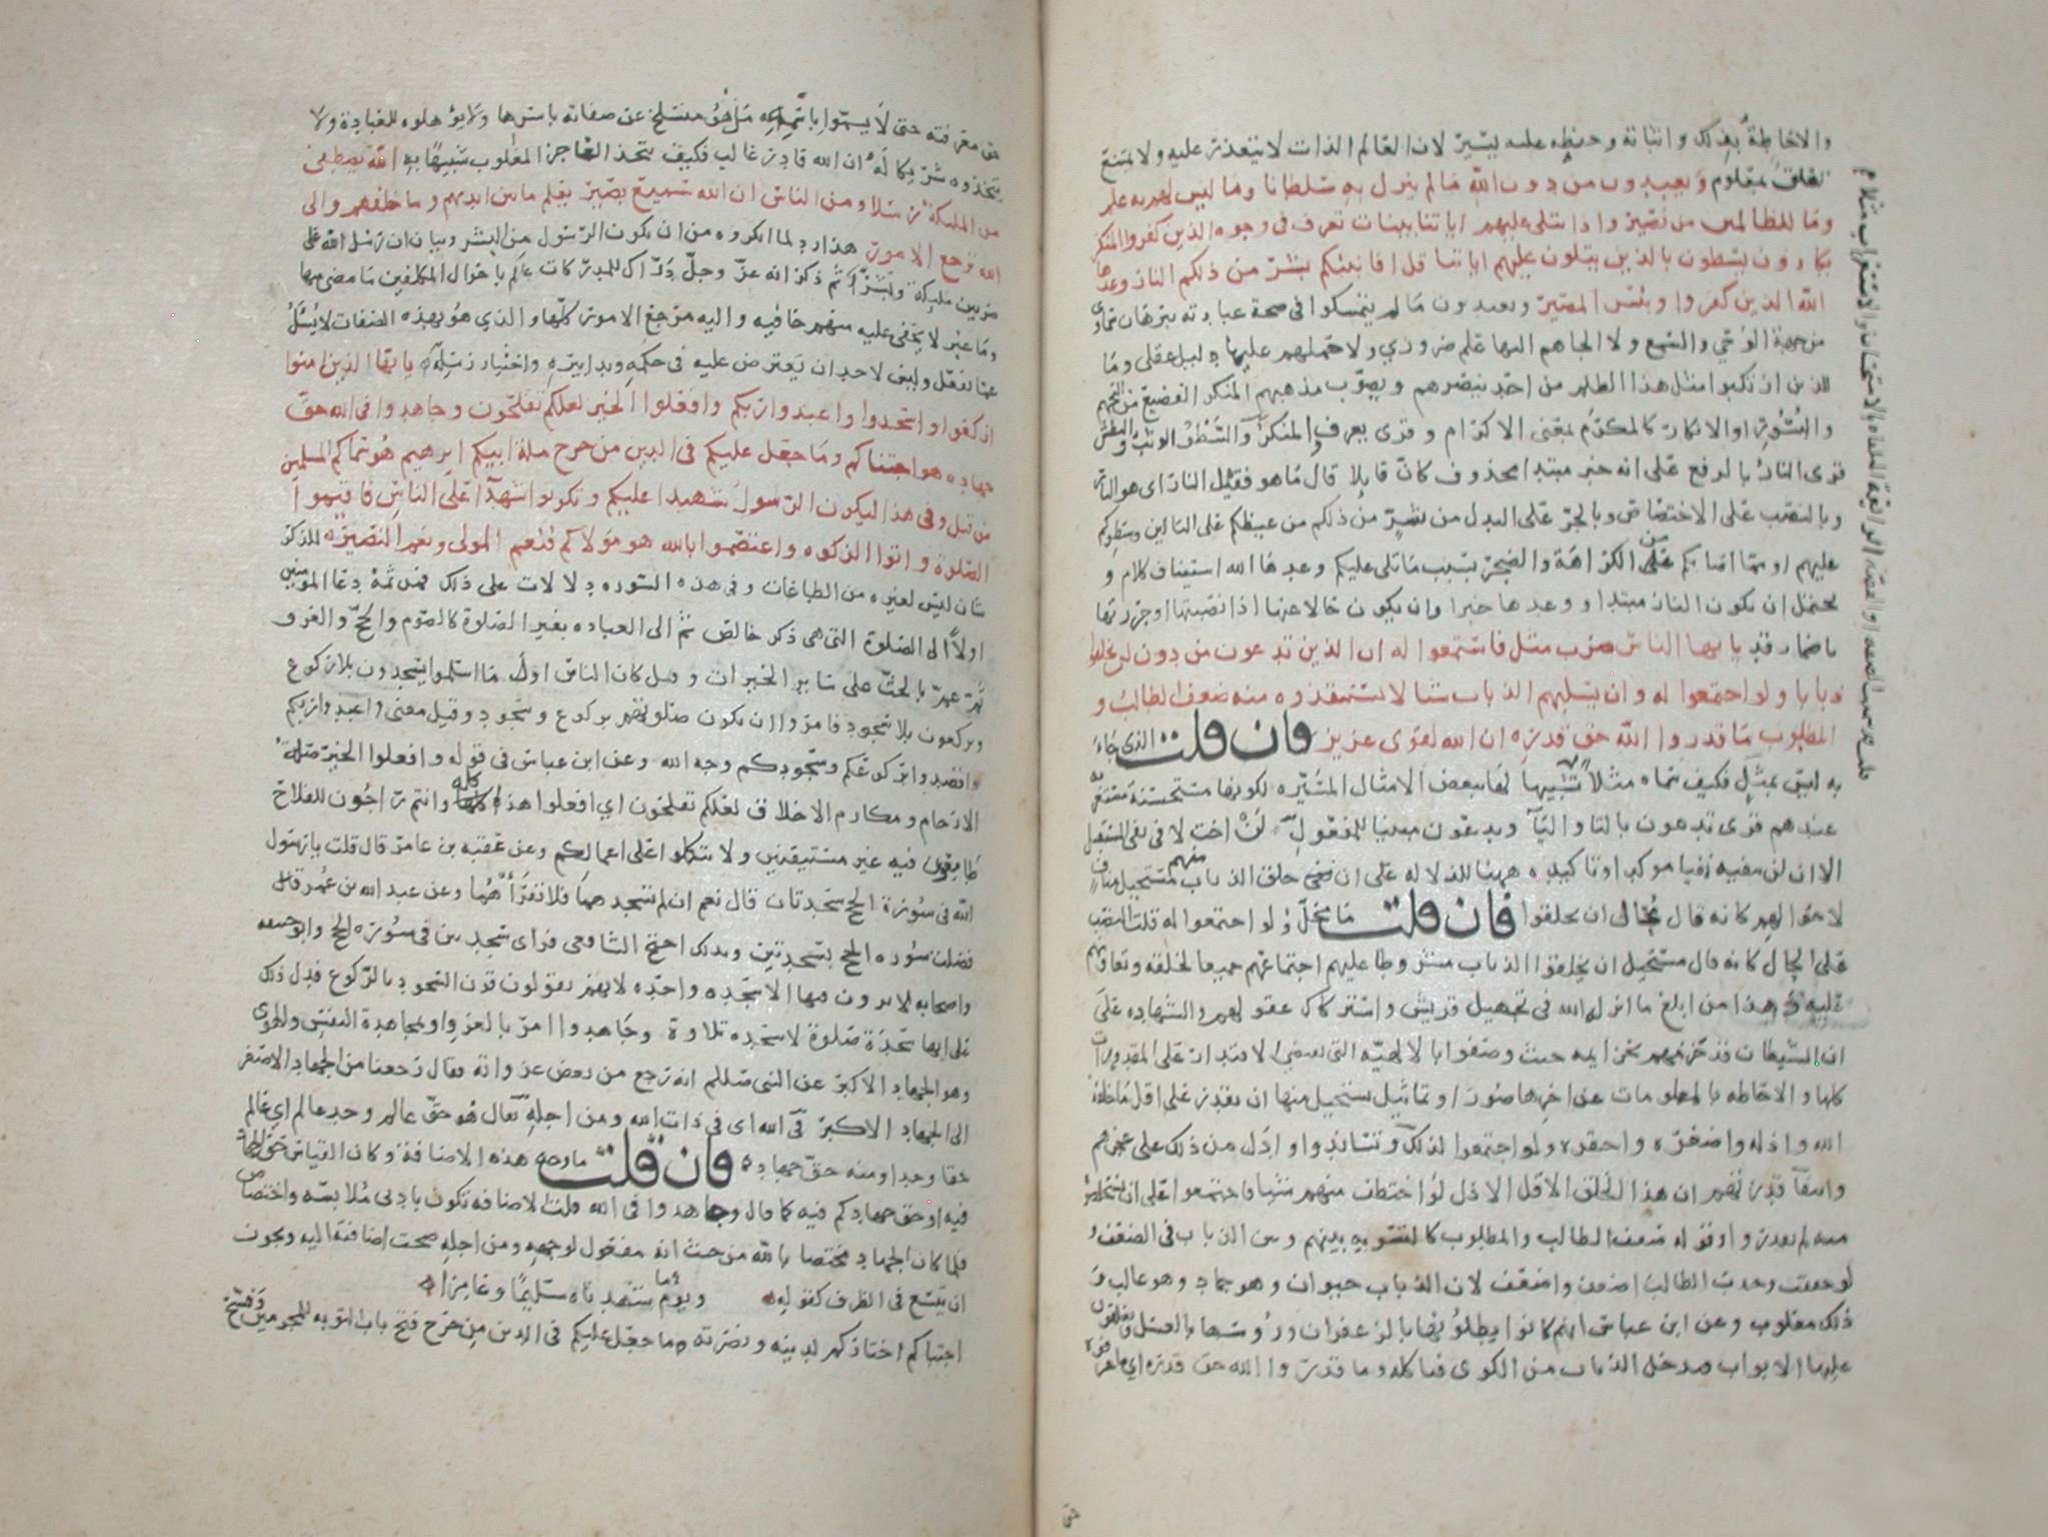 والاحاطة بذلك واثباته وحفظه عليه يسير لان العالم الذات لا يتعذر عليه ولا يمتنع
تعلق بمعلوم ويعبدون من دون الله مالم ينزل به سلطانا وما ليس لهم به علم
وما للظالمين من نصير واذا تتلى عليهم اياتنا بينات تعرف في وجوه الذين كفروا المنكر
يكادون يسطون بالذين يتلون عليهم اياتنا قل افانبئكم بشر من ذلكم النار وعدها
الله الذين كفروا وبئس المصير ويعبدون مالم يتمسكوا في صحة عبادته ببرهان سماوي
من جهة الوحي والسمع ولا الجاهم اليها علم ضروري ولا حملهم عليها دليل عقلي وما
للذين ارتكبوا مثل هذا الظلم من احد ينصرهم ويصوب مذهبهم المنكر الفضيع من التجهم
والبسور او الانكار كالمكرم بمعنى الاكرام وقرى يعرف المنكر والسطو الوثب والبطش
قرى النار بالرفع على انه خبر مبتدا محذوف كان قايلا قال ما هو فقيل النار اى هو النار
وبالنصب على الاختصاص وبالجر على البدل من شر من ذلكم من غيظكم على التالين وسطوكم
عليهم او مما اصابكم من الكراهة والضجر بسبب ما تلى عليكم وعدها الله استيناف كلام و
يحتمل ان يكون النار مبتدا ووعدها خبرا وان يكون حالا عنها اذا نصبتها او جررتها
باضمار قد يايها الناس ضرب مثل فاستمعوا له ان الذين تدعون من دون لن يخلقوا
ذبابا ولو اجتمعوا له وان يسلبهم الذباب شيا لا يستنقذوه منه ضعف الطالب و
المطلوب ما قدروا الله حق قدره ان الله لقوى عزيز فان قلت الذى جاء
به ليس بمثل فكيف سماه مثلا تشبيها لها ببعض الامثال المسيره لكونها مستحسنة مستغربة
عندهم قرى تدعون بالتا واليا ويدعون مبنيا للمفعول لن اخت لا في نفى المستقبل
الا ان لن تنفيه نفيا موكدا وتاكيده ههنا للدلاله على ان خلق الذباب منهم مستحيل مناف
لاحوالهم كانه قال محال ان يخلقوا فان قلت ما محل ولو اجتمعوا له قلت النصب
على الحال كانه قال مستحيل ان يخلقوا الذباب مشروطا عليهم اجتماعهم جميعا لخلقه وتعاونهم
عليه وهذا من ابلغ ما انزل الله في تجهيل قريش واستركاك عقولهم والشهاده على
ان الشيطان قد خزمهم بخزايمه حيث وصفوا بالالهيه التى تقتضى الاقتدار على المقدورات
كلها والاحاطه بالمعلومات عن اخرها صورا وتماثيل يستحيل منها ان يقدر على اقل ما خلقه
الله واذله واصغره واحقره ولو اجتمعوا لذلك وتساندوا وادل من ذلك على عجزهم
وانتفا قدرتهم ان هذا الخلق الاقل الاذل لو اختطف منهم شيا فاجتمعوا على ان يستخلصوا
منه لم يقدروا وقوله ضعف الطالب والمطلوب كالتسويه بينهم وبين الذباب في الضعف و
لو حققت وجدت الطالب اضعف واضعف لان الذباب حيوان وهو جماد وهو غالب و
ذلك مغلوب وعن ابن عباس انهم كانوا يطلونها بالزعفران ورؤسها بالعسل ويغلقون
عليها الابواب فيدخل الذباب من الكوى فياكله وما قدروا الله حق قدره اي ما عرفوه
حق معرفته حتى لا يسموا باسمه من هو منسلخ عن صفاته باسرها ولا يؤهلوه للعبادة ولا
يتخذوه شريكا له ان الله قادر غالب فكيف يتخذ العاجز المغلوب شبيها به الله يصطفى
من الملئكة رسلا ومن الناس ان الله سميع بصير يعلم ما بين ايديهم وما خلفهم والى
الله ترجع الامور هذا رد لما انكروه من ان يكون الرسول من البشر وبيان ان رسل الله على
ضربين مليكة وبشر ثم ذكر انه عز وجل دراك للمدركات عالم باحوال المكلفين ما مضى منها
وما غبر لا يخفى عليه منهم خافيه واليه مرجع الامور كلها والذي هو بهذه الصفات لا يسئل
عما يفعل وليس لاحد ان يعترض عليه في حكمه وتدابيره واختيار رسله يايها الذين امنوا
اركعوا واسجدوا واعبدوا ربكم وافعلوا الخير لعلكم تفلحون وجاهدوا في الله حق
جهاده هو اجتباكم وما جعل عليكم في الدين من حرج ملة ابيكم ابرهيم هو سماكم المسلمين
من قبل وفي هذا ليكون الرسول شهيدا عليكم وتكونوا شهدا على الناس فاقيموا
الصلوة واتوا الزكوه واعتصموا بالله هو مولاكم فنعم المولى ونعم النصير للذكر
شان ليس لغيره من الطاعات وفي هذه السوره دلالات على ذلك فمن ثمة دعا المومنين
اولا الى الصلوة التى هى ذكر خالص ثم الى العباده بغير الصلوة كالصوم والحج والغزو
ثم عم بالحث على ساير الخيرات وقيل كان الناس اول ما اسلموا يسجدون بلا ركوع
ويركعون بلا سجود فامروا ان يكون صلوتهم بركوع وسجود وقيل معنى واعبدوا ربكم
اقصدوا بركوعكم وسجودكم وجه الله وعن ابن عباس في قوله وافعلوا الخير صلة
الارحام ومكارم الاخلاق لعلكم تفلحون اي افعلوا هذا كله وانتم راجون للفلاح
طامعون فيه غير مستيقنين ولا تتكلوا على اعمالكم وعن عقبه بن عامر قال قلت يا رسول
الله في سورة الحج سجدتان قال نعم ان لم تسجدهما فلا تقراهما وعن عبد الله بن عمر قال
فضلت سوره الحج بسجدتين وبذلك احتج الشافعى فراى سجدتين في سوره الحج وابو حنيفه
واصحابه لا يرون فيها الا سجده واحده لانهم يقولون قرن السجود بالركوع فدل ذلك
على انها سجدة صلوة لا سجده تلاوة وجاهدوا امر بالغزو او بمجاهدة النفس والهوى
وهو الجهاد الاكبر عن النبى صللم انه رجع من بعض غزواته فقال رجعنا من الجهاد الاصغر
الى الجهاد الاكبر في الله اى في ذات الله ومن اجله يقال هو حق عالم وجد عالم اي عالم
حقا وجدا ومنه حق جهاده فان قلت ما وجه هذه الاضافة وكان القياس حق الجهاد
فيه او حق جهادكم فيه كما قال وجاهدوا في الله قلت الاضافه تكون بادنى ملابسه واختصاص
فلما كان الجهاد مختصا بالله من حيث انه مفعول لوجهه ومن اجله صحت اضافته اليه ويجوز
ان يتسع في الظرف كقوله ويوما شهدناه سليما وعامرا
اجتباكم اختاركم لدينه ونصرته وما جعل عليكم في الدين من حرج فتح باب التوبه للمجرمين وفسح